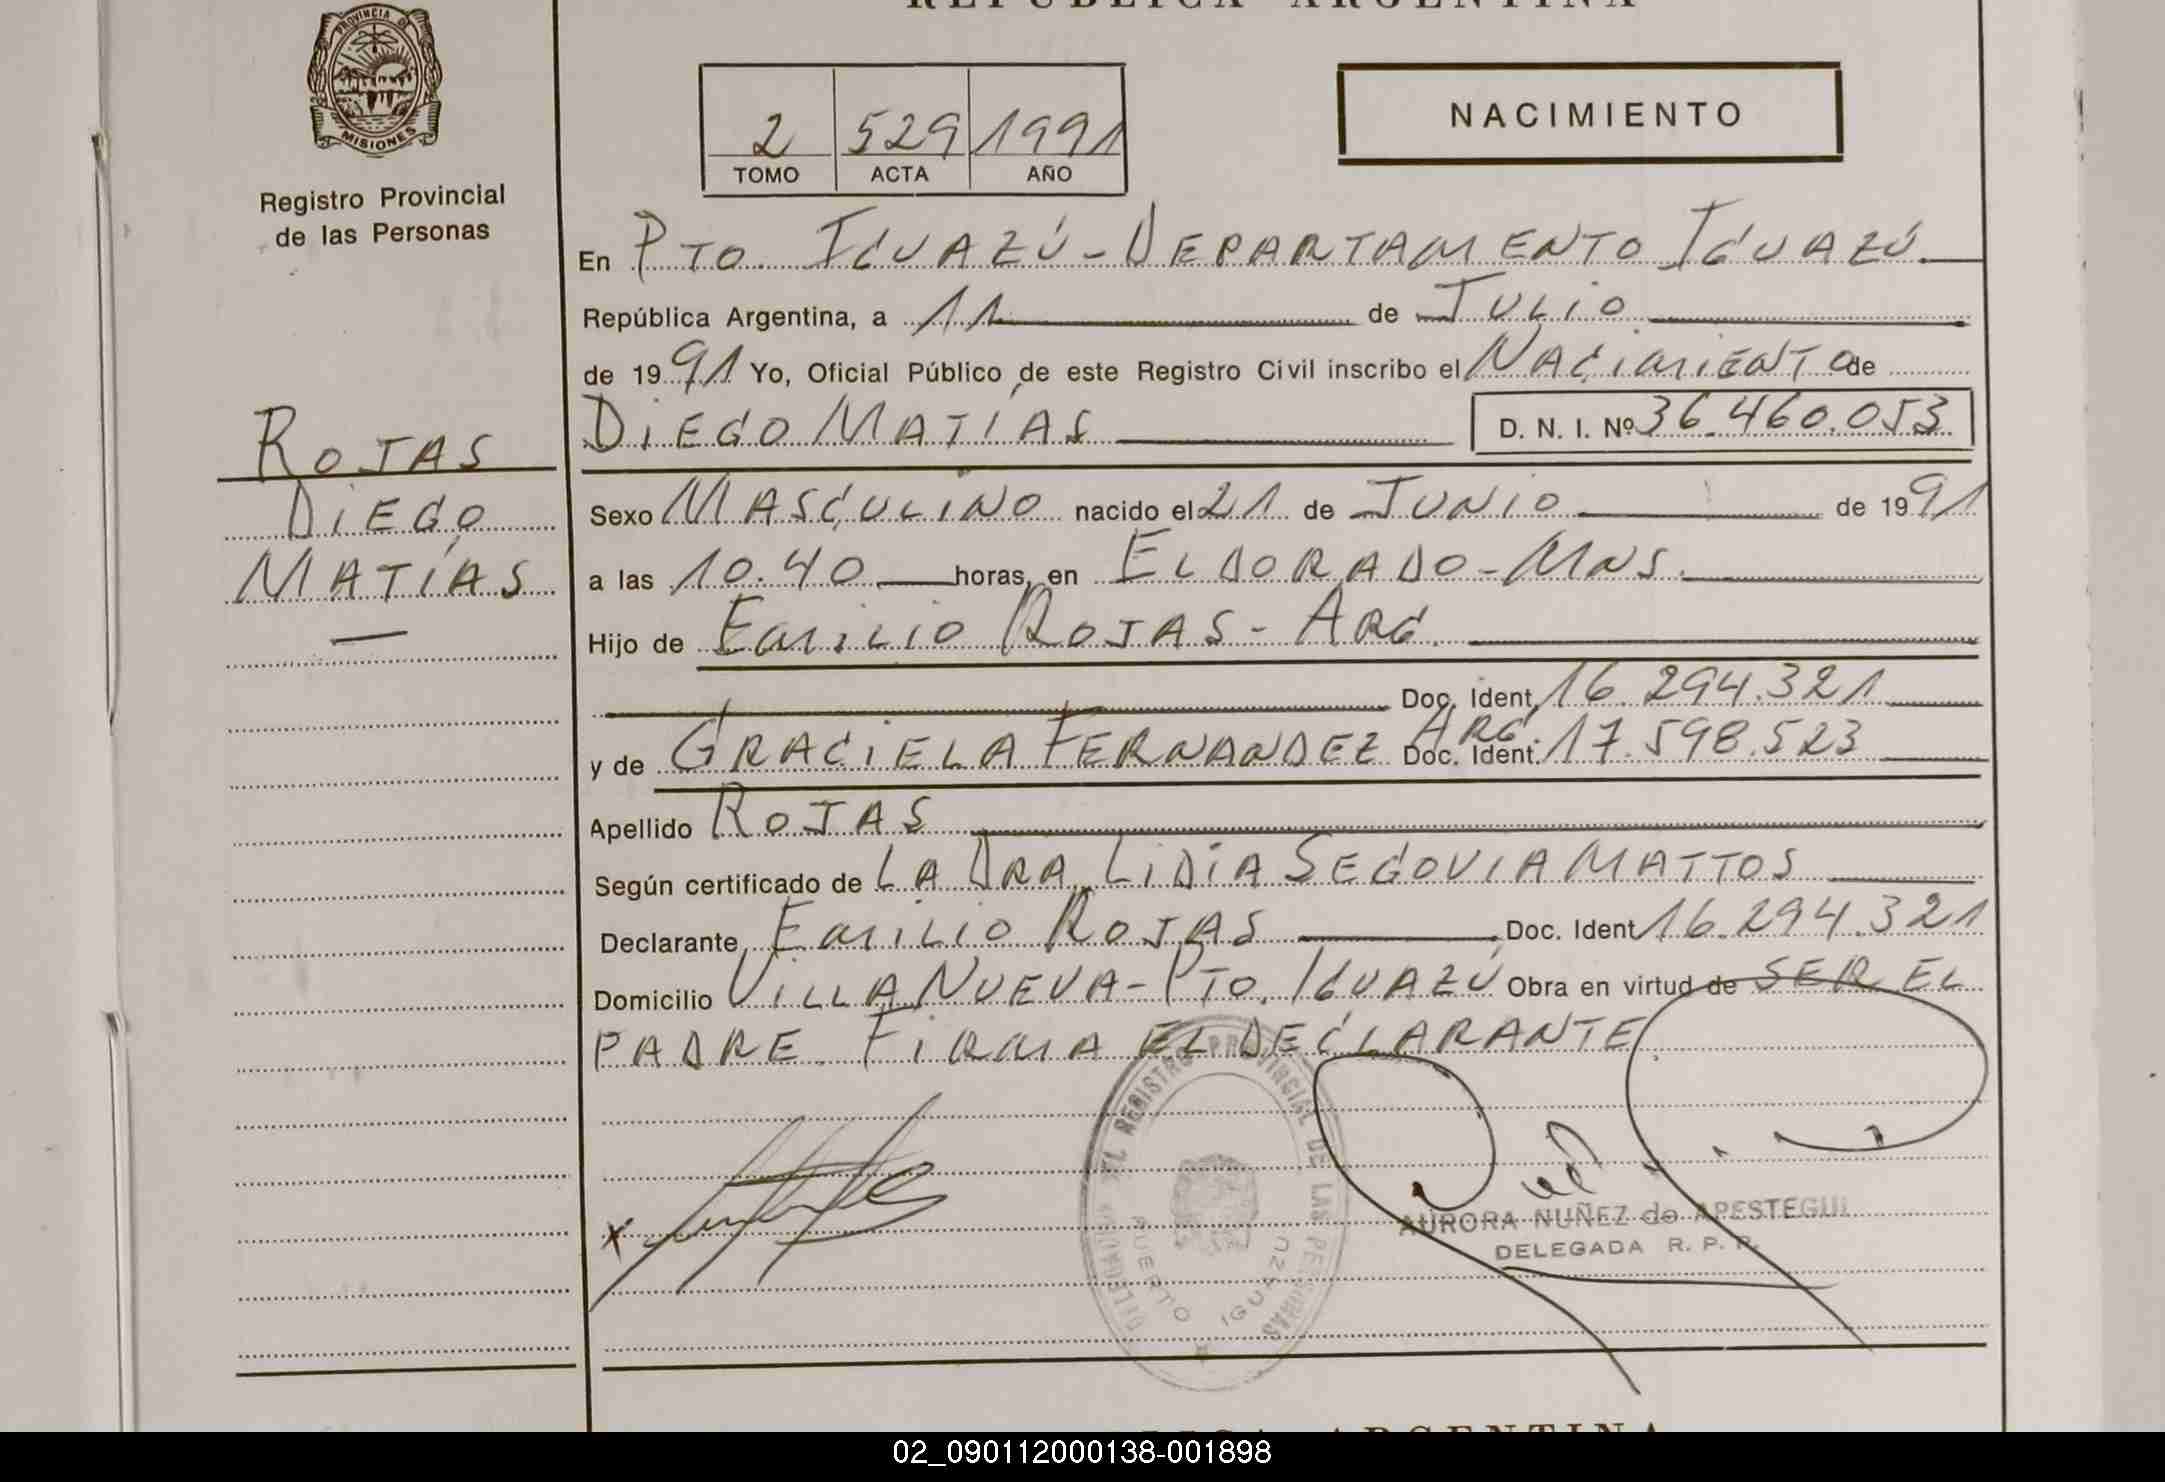 REPUBLICA ARGENTINA
PROVINCIA DE
MISIONES
Registro Provincial
de las Personas
2 529 1991
TOMO ACTA AÑO
NACIMIENTO
En PTO. IGUAZÚ - DEPARTAMENTO IGUAZÚ
República Argentina, a 11 de JULIO
de 1991 Yo, Oficial Público de este Registro Civil inscribo el NACIMIENTO de
DIEGO MATÍAS D. N. I. Nº 36.460.053
ROJAS
DIEGO
MATÍAS
Sexo MASCULINO nacido el 21 de JUNIO de 1991
a las 10.40 horas, en ELDORADO - MNS.
Hijo de EMILIO ROJAS - ARG.
Doc. Ident. 16.294.321
y de GRACIELA FERNANDEZ ARG. Doc. Ident. 17.598.523
Apellido ROJAS
Según certificado de LA DRA. LIDIA SEGOVIA MATTOS
Declarante EMILIO ROJAS Doc. Ident 16.294.321
Domicilio VILLA NUEVA - PTO. IGUAZÚ Obra en virtud de SER EL
PADRE. FIRMA EL DECLARANTE.
REGISTRO PROVINCIAL DE LAS PERSONAS
PUERTO IGUAZU
X
AURORA NUÑEZ de APESTEGUI
DELEGADA R. P. P.
ARGENTINA
02_090112000138-001898